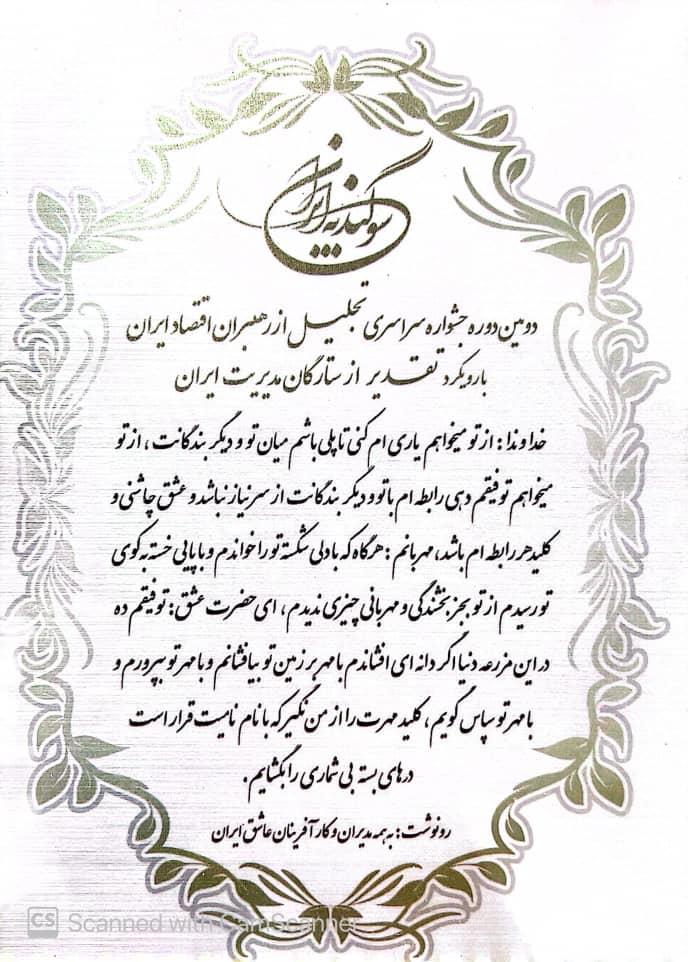 سوگند به ایران
دومین دوره جشنواره سراسری تجلیل از رهبران اقتصاد ایران
با رویکرد تقدیر از ستارگان مدیریت ایران
خداوندا: از تو میخواهم یاری ام کنی تا پلی باشم میان تو و دیگر بندگانت، از تو
میخواهم توفیقم دهی رابطه ام با تو و دیگر بندگانت از سر نیاز نباشد و عشق چاشنی و
کلید هر رابطه ام باشد، مهربانم: هرگاه که با دلی شکسته تو را خواندم و با پایی خسته به کوی
تو رسیدم از تو بجز بخشندگی و مهربانی چیزی ندیدم، ای حضرت عشق: توفیقم ده
در این مزرعه دنیا اگر دانه ای افشاندم با مهر بر زمین تو بیافشانم و با مهر تو بپرورم و
با مهر تو سپاس گویم، کلید مهرت را از من نگیر که با نام نامیت قرار است
درهای بسته بی شماری را بگشایم.
رونوشت: به همه مدیران و کارآفرینان عاشق ایران
CS Scanned with CamScanner